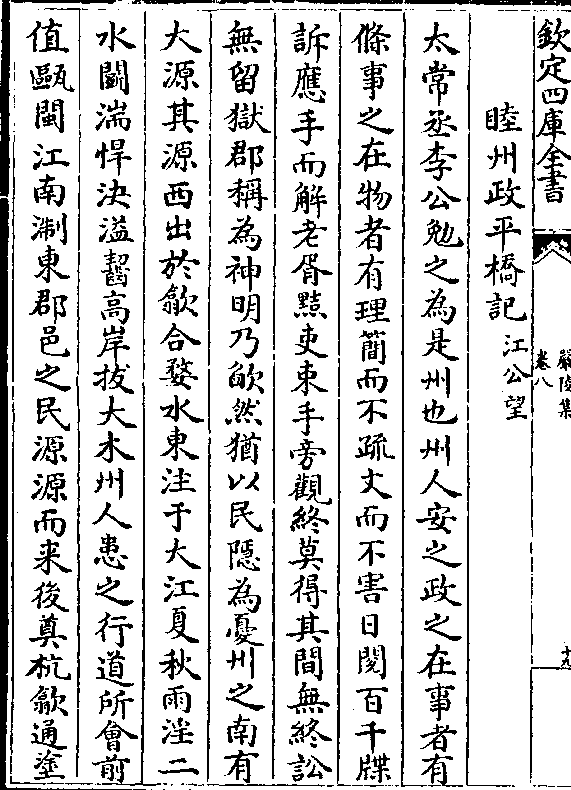 欽定四庫全書
嚴陵集
卷八
十九
睦州政平橋記 江公望
太常丞李公勉之為是州也州人安之政之在事者有
條事之在物者有理簡而不疏丈而不害日閱百千牒
訴應手而解老胥黠吏束手旁觀終莫得其間無終訟
無留獄郡稱為神明乃欿然猶以民隱為憂州之南有
大源其源西出於歙合婺水東注于大江夏秋雨淫二
水鬬湍悍決溢齧高岸拔大木州人患之行道所會前
值甌閩江南淛東郡邑之民源源而来後奠杭歙通塗